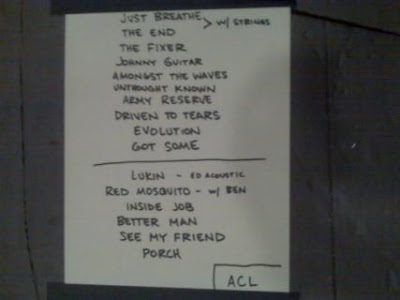 JUST BREATHE
> W/ STRINGS
THE END
THE FIXER
JOHNNY GUITAR
AMONGST THE WAVES
UNTHOUGHT KNOWN
ARMY RESERVE
DRIVEN TO TEARS
EVOLUTION
GOT SOME
LUKIN - ED ACOUSTIC
RED MOSQUITO - W/ BEN
INSIDE JOB
BETTER MAN
SEE MY FRIEND
PORCH
ACL